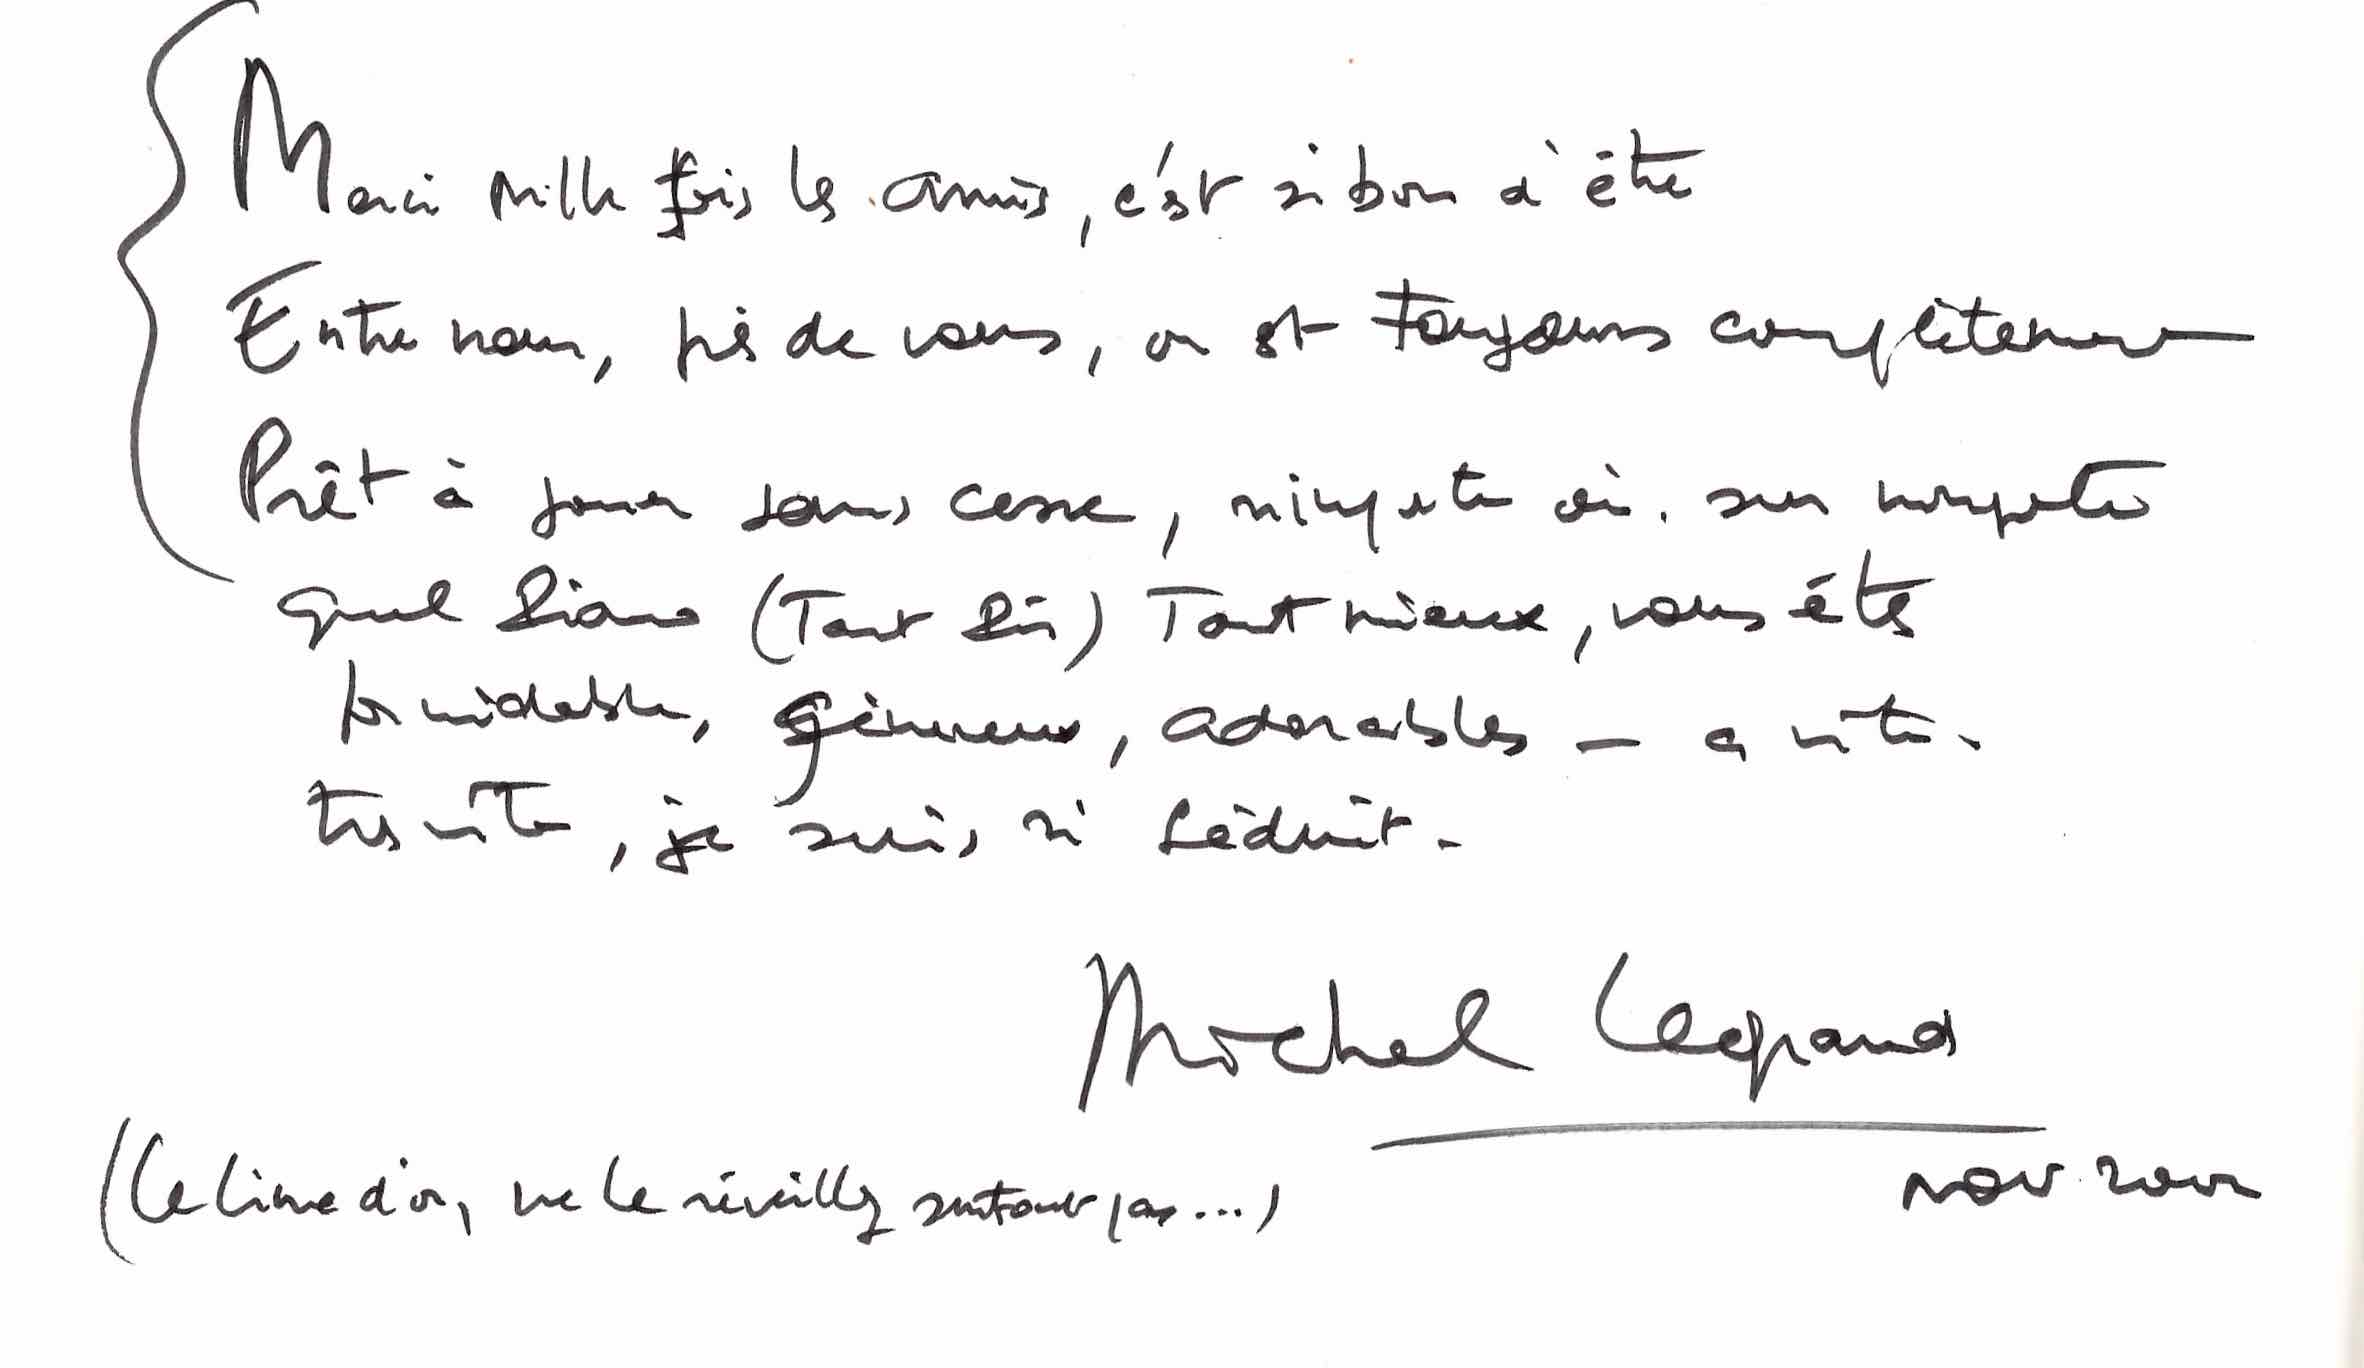 Merci mille fois les amis, c'est si bon d'être
Entre nous, près de vous, on est toujours complètement
Prêt à jouer sans cesse, n'importe où. sur n'importe
quel piano (Tant pis) Tant mieux, vous êtes
formidables, généreux, adorables – a vite.
très vite, je suis si séduit.
Michel Legrand
(Le livre d'or, ne le réveillez surtout pas...)
nov.